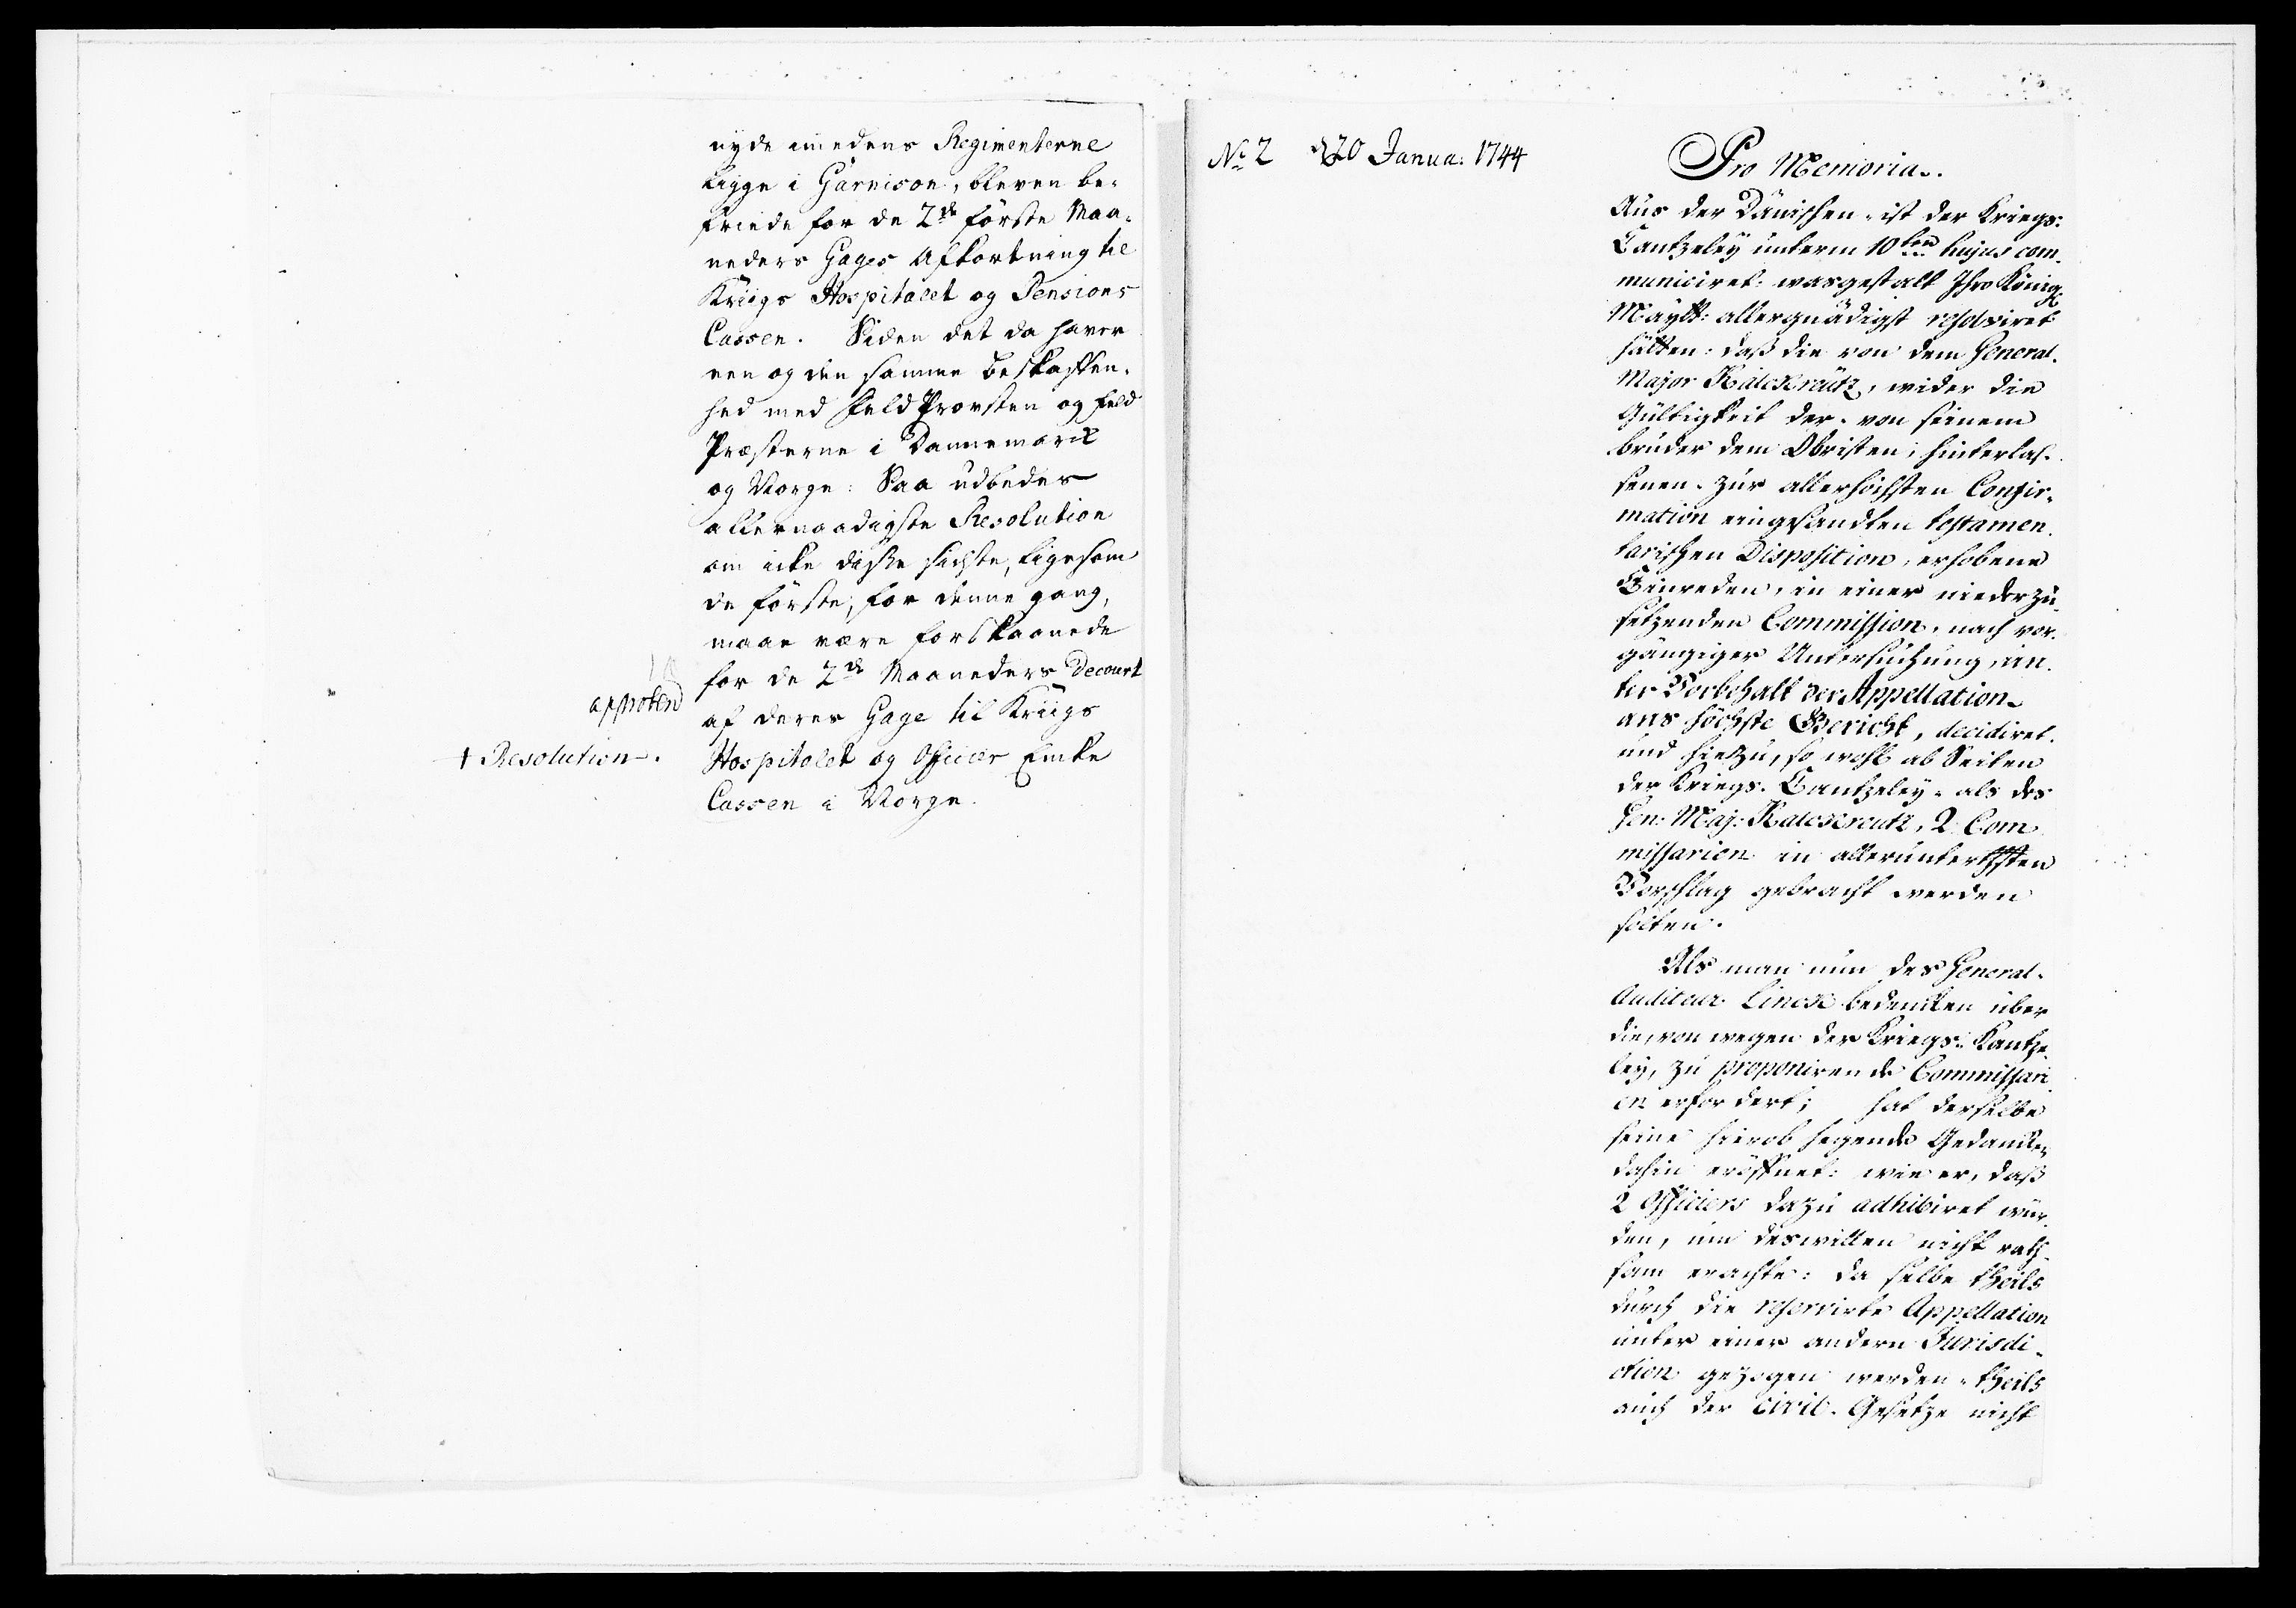 nyde imedens Regimenterne
ligge i Garnison, bleven be-
friede for de 2de förste Maa-
neders Gages Afkortning til
Kriigs Hospitalet og Pensions
Cassen. Siden det da haver
een og den samme beskaffen-
hed med Feld Provsten og Feld
Præsterne i Dannemarck
og Norge: Saa udbedes
allernaadigste Resolution
om icke disse sidste, ligesom
de förste, for denne gang,
maae være forskaanede
for de 2de Maaneders Decourt
approben
af deres Gage til Kriigs
+ Resolution.
Hospitalet og Officier Encke
Cassen i Norge.
No 2 d 20 Janua: 1744
Pro Memoria.
Aus der Dänischen- ist der Kriegs-
Cantzeley unterm 10ten hujus com-
municiret: wasgestalt Ihro Königl:
Maytt: allergnädigst resolviret
hätten: daß die von dem General-
Major Kalckreutz, wider die
Gültigkeit der- von seinem
bruder dem Obristen, hinterlas-
senen- zur allerhöchsten Confir-
mation eingesandten testamen-
tarischen Disposition, erhobene
Einreden, in einer niederzu-
setzenden Commission, nach vor-
gängiger Untersuchung, un-
ter Vorbehalt der Appellation
ans höchste Gericht, decidiret-
und hiezu, so wohl ab Seiten
der Kriegs-Cantzeley- als des
Gen: Maj: Kalckreutz, 2 Com-
missarien in allerunterthsten
Vorschlag gebracht werden
solten.
Als man nun des General-
Auditeur Linck bedencken über
die, von wegen der Kriegs-Cantze-
ley, zu proponirende Commissari-
en erfordert; hat derselbe
seine hierob hegende Gedancken
dahin eröffnet: wie er, daß
2 Officiers dazu adhibiret wür-
den, um deswillen nicht rath-
sam erachte: da selbe theils
durch die reservirte Appellation
unter einer andern Jurisdi-
ction gezogen werden- theils
auch der Civil-Gesetze nicht